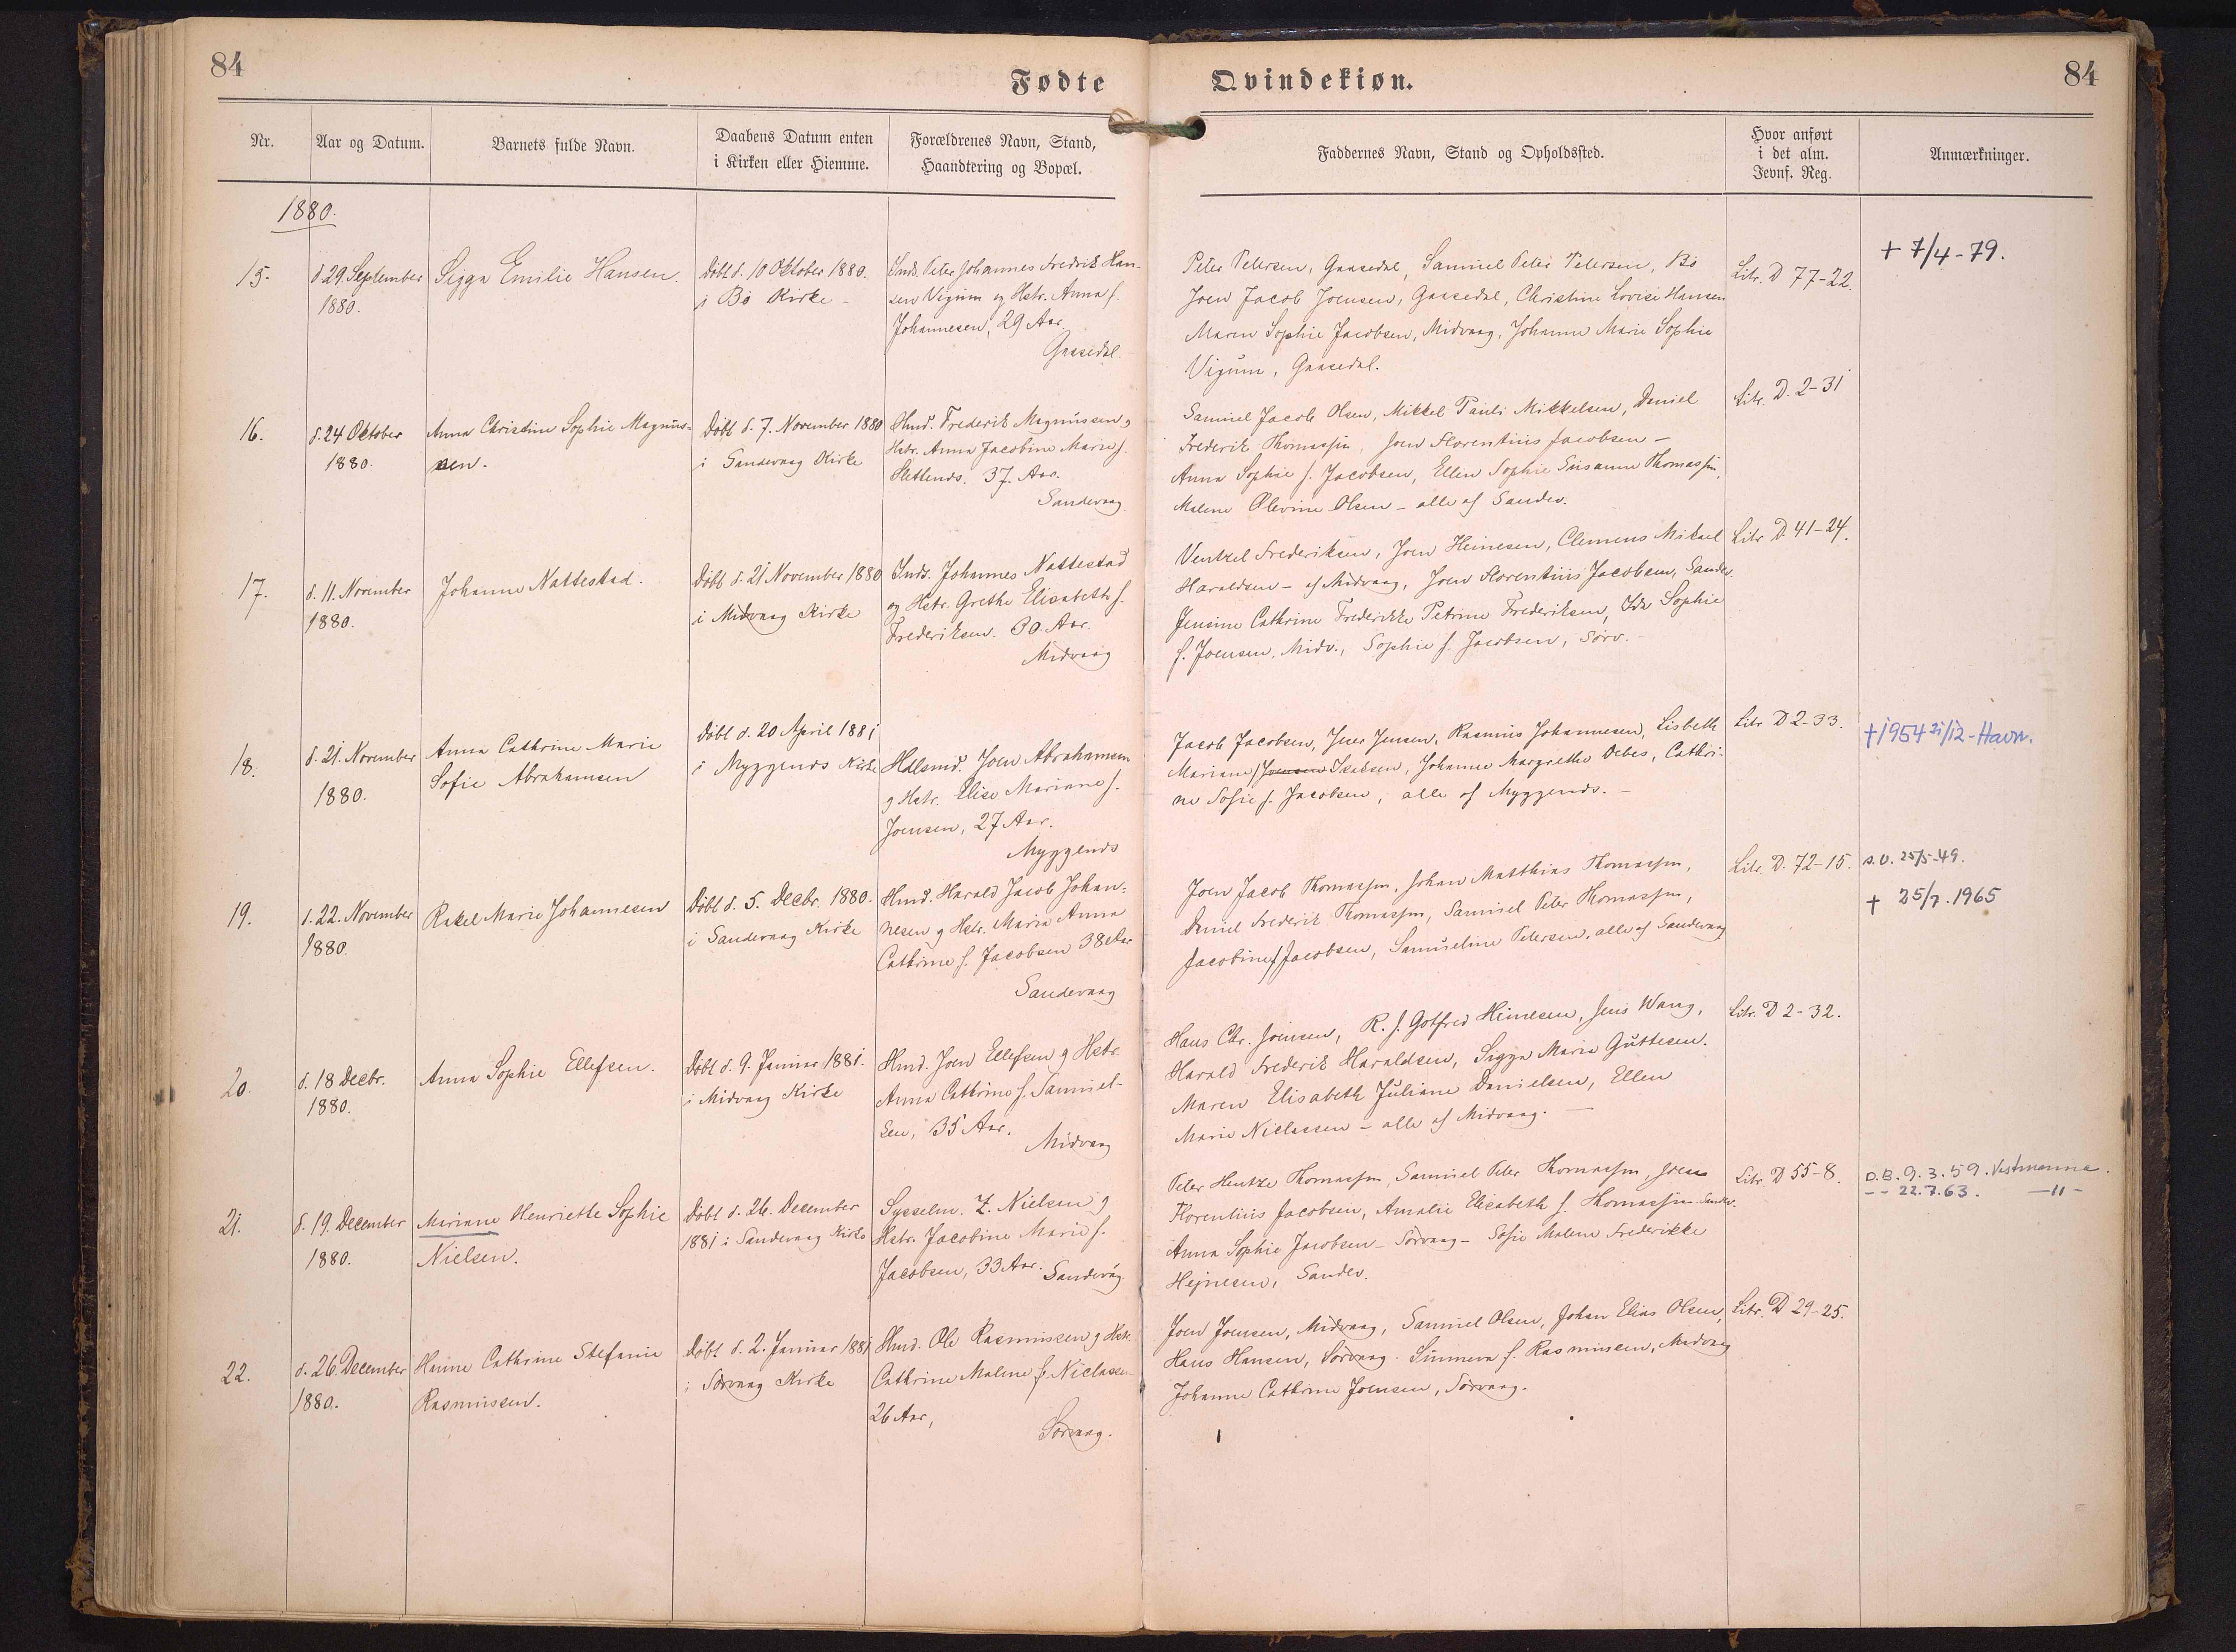 84
Fødte
Qvindekiøn.
84
Nr.
Aar og Datum.
Barnets fulde Navn.
Daabens Datum enten
i Kirken eller Hiemme.
Forældrenes Navn, Stand,
Haandtering og Bopæl.
Faddernes Navn, Stand og Opholdssted.
Hvor anført
i det alm.
Jevnf. Reg.
Anmærkninger.
1880.
15.
d. 29 September
1880.
Sigga Emilie Hansen.
Døbt d. 10 Oktober 1880.
i Bø Kirke -
Inds. Peter Johannes Fredrik Han-
sen Vigum og Hstr. Anna f.
Johannesen, 29 Aar
Gaasedal.
Peter Petersen, Gaasedal, Samuel Peter Petersen, Bø
Joen Jacob Joensen, Gaasedal, Christine Lovise Hansen
Maren Sophie Jacobsen, Midvaag, Johanne Marie Sophie
Vigum, Gaasedal.
Litr. D 77-22.
+ 7/4-79.
16.
d. 24 Oktober
1880.
Anna Christine Sophie Magnus-
sen.
Døbt d. 7. November 1880
i Sandevaag Kirke
Hmd. Frederik Magnussen g
Hstr. Anna Jacobine Marie f.
Slettends. 37. Aar.
Sandevaag
Samuel Jacob Olsen, Mikkel Pauli Mikkelsen, Daniel
Frederik Thomassen, Joen Florentius Jacobsen -
Anna Sophie f. Jacobsen, Ellen Sophie Susanne Thomassen,
Malene Olevine Olsen - alle af Sandev.
Litr. D. 2-31
17.
d. 11. November
1880.
Johanne Nattestad.
Døbt d. 21 November 1880
i Midvaag Kirke
Inds. Johannes Nattestad
og Hstr. Grethe Elisabeth f.
Frederiksen. 30. Aar.
Midvaag
Ventzel Frederiksen, Joen Heinesen, Clemens Mikael
Haraldsen - af Midvaag, Joen Florentius Jacobsen, Sandev.
Jensine Cathrine Frederikke Petrine Frederiksen, Ida Sophie
f. Joensen, Midv., Sophie f. Jacobsen, Sørv. -
Litr D 41-24.
18.
d. 21. November
1880.
Anna Cathrine Marie
Sofie Abrahamsen
Døbt d. 20 April 1881
i Myggenæs Kirke
Halsmd. Joen Abrahamsen
g Hstr. Elise Mariane f.
Joensen, 27 Aar.
Myggenæs
Jacob Jacobsen, Jens Jensen, Rasmus Johannesen, Lisbeth
Mariane f. Joensen Isaksen, Johanne Margrethe Debes, Cathri-
ne Sofie f. Jacobsen, alle af Myggenæs. -
Litr D 2-33.
+1954 21/12-Havn.
19.
d. 22. November
1880.
Rakel Marie Johannesen
Døbt d. 5. Decbr. 1880.
i Sandevaag Kirke
Hmd. Harald Jacob Johan-
nesen g Hstr. Maria Anna
Cathrine f. Jacobsen 38 Aar
Sandevaag
Joen Jacob Thomassen, Johan Matthias Thomassen,
Daniel Frederik Thomassen, Samuel Peter Thomassen,
Jacobine f. Jacobsen, Samueline Petersen, alle af Sandevaag
Litr. D. 72-15.
s.v. 25/5-49.
+ 25/7.1965
20.
d. 18 Decbr.
1880.
Anna Sophie Ellefsen.
Døbt d. 9. Januar 1881.
i Midvaag Kirke
Hmd. Joen Ellefsen g Hstr.
Anna Cathrine f. Samuel-
sen, 35 Aar.
Midvaag
Hans Chr. Joensen, R. J. Gotfred Heinesen, Jens Wang,
Harald Frederik Haraldsen, Sigga Maria Guttesen.
Maren Elisabeth Juliane Danielsen, Ellen
Marie Niclassen - alle af Midvaag. -
Litr. D 2-32.
21.
d. 19. December
1880.
Mariane Henriette Sophie
Nielsen.
Døbt d. 26. December
1881 i Sandevaag Kirke
Sysselm. Z. Nielsen g
Hstr. Jacobine Marie f.
Jacobsen, 33 Aar. Sandevåg
Peter Hentze Thomassen, Samuel Peter Thomassen, Joen
Florentius Jacobsen, Amalie Elisabeth f. Thomassen Sandev.
Anna Sophie Jacobsen - Sørvaag - Sofie Malene Frederikke
Hejnesen, Sandev.
Litr. D 55-8.
D.B. 9.3.59. Vestmanna.
-- 22.7.63. -11-
22.
d. 26. December
1880.
Hanne Cathrine Stefanie
Rasmussen.
Døbt d. 2. Januar 1881
i Sørvaag Kirke
Hmd. Ole Rasmussen g Hstr.
Cathrine Malene f. Niclassen
26 Aar,
Sørvaag.
Joen Joensen, Midvaag, Samuel Olsen, Johan Elias Olsen,
Hans Hansen, Sørvaag. Sunneva f. Rasmussen, Midvaag
Johanne Cathrine Joensen, Sørvaag.
Litr. D 29-25.